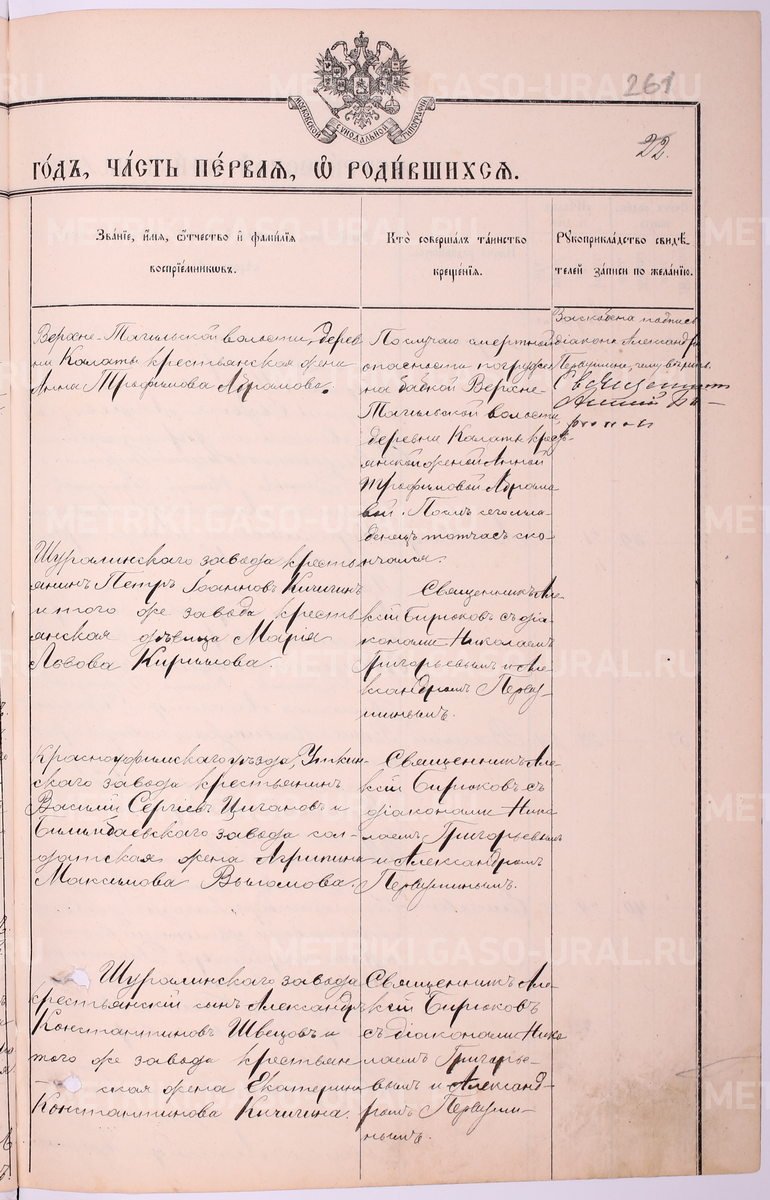 261
МОСКОВСКОЙ СѴНОДАЛЬНОЙ ТИПОГРАФІИ
22.
го́дъ, ча́сть пе́рваѧ, ѡ҆ роди́вшихсѧ.
Зва́нїе, и҆́мѧ, ѻ҆́тчество и҆ фамилїѧ
воспрїе́мникѡвъ.
Кто̀ соверша́лъ та́инство
креще́нїѧ.
Рꙋкоприкла́дство свидѣ́-
телей за́писи по жела́нїю.
Верхне-Тагильской волости, дерев
ни Калаты крестьянская жена
Анна Трофимова Абрамова.
По случаю смертной
опасности погруже-
на бабкой Верхне-
Тагильской волости
деревни Калаты кресть-
янской женой Анной
Трофимовой Абрамо
вой. Послѣ сего мла-
денецъ тотчасъ ско-
нчался.
подпись
діакона Александра
Первушина, чему вѣрить.
Священникъ
Шуралинскаго завода кресть
янинъ Петръ Іоанновъ Кичигинъ
и того же завода кресть
янская дѣвица Марія
Львова Кирилова.
Священникъ Але
ксій Бирюковъ съ діа
конами Николаемъ
Григорьевымъ и Але
ксандромъ Перву
шинымъ.
Красноуфимскаго уѣзда, Уткин
скаго завода крестьянинъ
Василій Сергіевъ Цигановъ и
Билимбаевскаго завода сол-
датская жена Агрипина
Максимова Выломова.
Священникъ Але
ксій Бирюковъ съ
діаконами Нико
лаемъ Григорьевымъ
и Александромъ
Первушинымъ.
Шуралинскаго завода
крестьянскій сынъ Александръ
Константиновъ Швецовъ и
того же завода крестьян
ская жена Екатерина
Константинова Кичигина.
Священникъ Але
ксій Бирюковъ
съ діаконами Нико
лаемъ Григорье-
вымъ и Александ-
ромъ Первуши-
нымъ.
METRIKI.GASO-URAL.RU